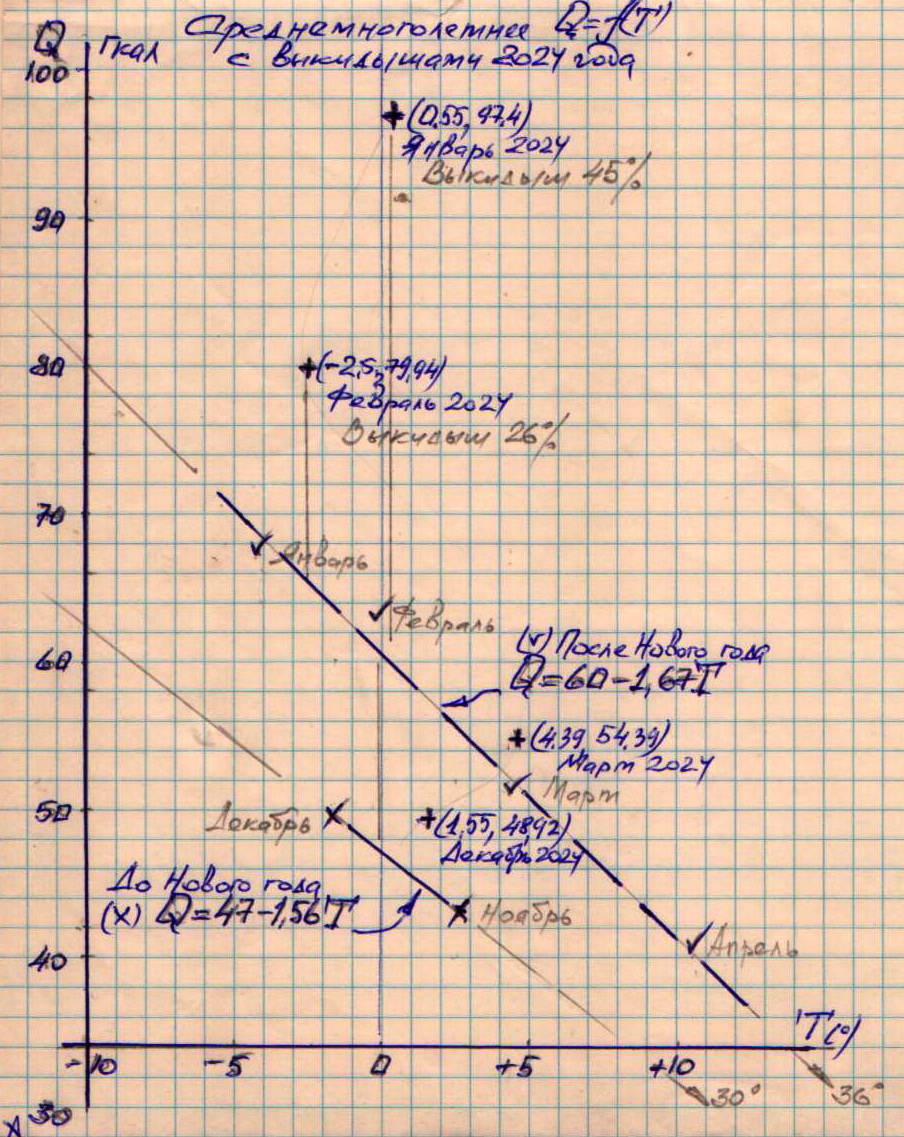 Q Гкал
Среднемноголетнее Q=f(T)
с выкидышами 2024 года
100
(0.55, 97.4)
Январь 2024
Выкидыш 45%
90
80
(-2,5, 79,94)
Февраль 2024
Выкидыш 26%
70
Январь
Февраль
60
(v) После Нового года
Q=60-1,67T
(4.39, 54.39)
Март 2024
Март
50
Декабрь
(1,55, 48,92)
Декабрь 2024
До Нового года
(x) Q=47-1,56T
Ноябрь
40
Апрель
T(°)
-10 -5 0 +5 +10
30° 36°
30